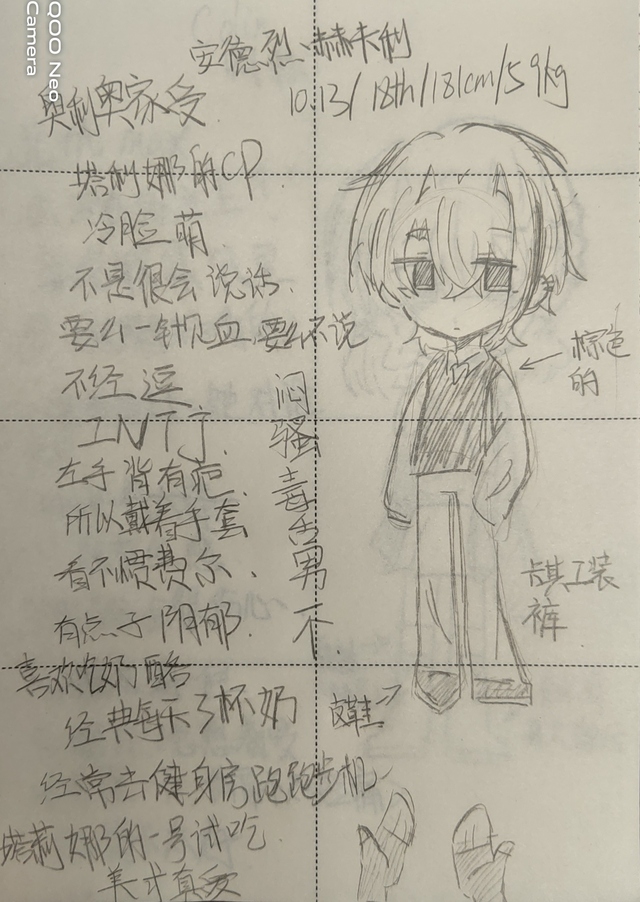 QOO Neo
Camera
安德烈·赫卡利
10.13/18th/181cm/59kg
奥利奥家受
塔利娜的CP
冷脸萌
不是很会说话.
要么一针见血,要么不说
不经逗
INTJ.
左手背有疤.
所以戴着手套
看不惯费尔.
有点子阴郁.
喜欢吃奶酪
经典每天3杯奶
经常去健身房跑跑步机
塔莉娜的一号试吃
美式真爱
闷骚毒舌男不.
棕色的
卡其工装裤
皮鞋